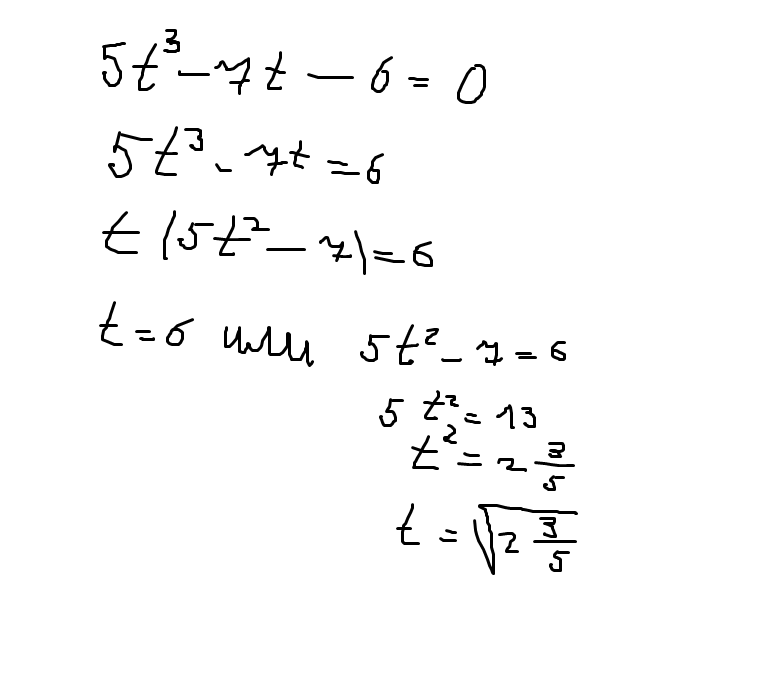 5t³ - 7t - 6 = 0
5t³ - 7t = 6
t (5t² - 7) = 6
t = 6 или 5t² - 7 = 6
5 t² = 13
t² = 2 3/5
t = √(2 3/5)